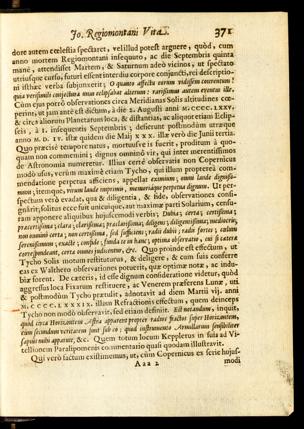 Jo. Regiomontani Vita. 371
dore autem cælestia spectaret, vel illud potest arguere, quòd, cum
anno mortem Regiomontani insequuto, ac die Septembris quinta
manè, attendisset Martem, & Saturnum adeò vicinos, ut spectato
utriusque cursu, futuri essent interdiu corpore conjuncti, rei descriptio-
ni isthæc verba subjunxerit;
Cùm ejus porrò observationes circa Meridianas Solis altitudines cœ-
perint, ut jam antè est dictum, à die 2. Augusti anni M. CCCC. LXXV.
& circa aliorum Planetarum loca, & distantias, ac aliquot etiam Eclip-
seis, à 1. insequentis Septembris; desierunt postmodùm utræque
anno M. D. IV. istæ quidem die Maij XXX. illæ verò die Junii tertia.
Quo præcisè tempore natus, mortuusve is fuerit, proditum à quo-
quam non commemini; dignus omninò vir, qui inter meren­tissimos
de Astronomia numeretur. Illius certè observatis non Copernicus
modò usus, verùm maximè etiam Tycho, qui illum propterea com-
mendatione perpetua afficiens, appellat eximium; omni laude dignissi-
mum; itemque, virum laude imprimis, memoriâque perpetua dignum. Ut per-
spectum verò evadat, qua & diligentia, & fide, observationes consi-
gnârit; solitus ecce fuit unicuique, aut maximæ parti Solarium, censu-
ram apponere aliquibus hujuscemodi verbis; Dubia; certa; certissima;
præcertissima; clara; clarissima; præclarissima; diligens; diligentissima; mediocris;
non omnino certa; non certissima, sed sufficiens; radii dubii; radii fortes; cælum
serenissimum; exactè; confide; funda te in hanc; optima observatio, cui si cætera
correspondeant, certa omnino judicentur, &c. Quo proinde est effectum, ut
Tycho Solis motum restituturus, & deligere, & cum suis conferre
eas ex Walthero observationes potuerit, quæ optimæ notæ, ac indu-
biæ forent. De cæteris, id esse dignum consideratione videtur, quòd
aggressus loca Fixarum restituere, ac Venerem præeferens Lunæ, uti
& postmodùm Tycho prætulit, adnotavit ad diem Martii vij. anni
M. CCCC. LXXXIX. illum Refractionis effectum, quem deinceps
Tycho non modò observavit, sed etiam definiit. Est notandum, inquit,
quòd circa Horizontem Astra apparent propter radios fractos super Horizontem,
cùm secundum veritatem sunt sub eo; quod instrumento Armillarum sensibiliter
sæpiùs mihi apparuit, &c. Quem totum locum Kepplerus in sua ad Vi-
tellionem Paralipomenis commentario quasi quodam illustravit.
Qui verò factum existimemus, ut, cùm Copernicus ex serie hujus-
Aaa 2 modi